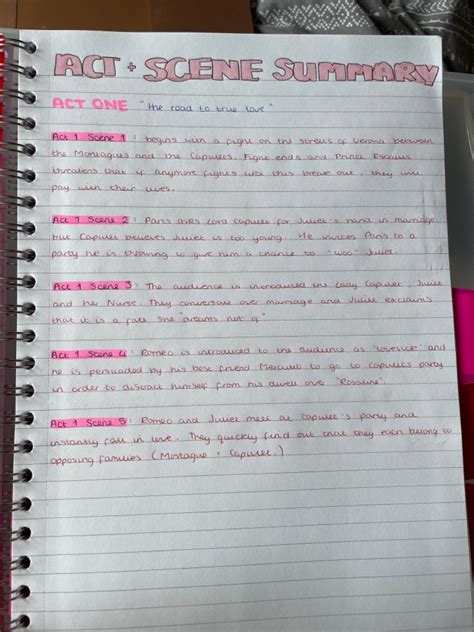 ACT + SCENE SUMMARY
ACT ONE "the road to true love"
Act 1 Scene 1: begins with a fight on the streets of Verona between
the Montagues and the Capulets. Fight ends and Prince Escalus
threatens that if anymore fights like this break out, they will
pay with their lives.
Act 1 Scene 2: Paris asks Lord Capulet for Juliet's hand in marriage
but Capulet believes Juliet is too young. He invites Paris to a
party he is throwing to give him a chance to "woo" Juliet.
Act 1 Scene 3: The audience is introduced the Lady Capulet, Juliet
and her Nurse. They converse over marriage and Juliet exclaims
that it is a fate she "dreams not of"
Act 1 Scene 4: Romeo is introduced to the audience as 'lovesick' and
he is persuaded by his best friend Mercutio to go to Capulet's party
in order to distract himself from his over 'Rosaline'.
Act 1 Scene 5: Romeo and Juliet meet at Capulet's party and
instantly fall in love. They quickly find out that they both belong to
opposing families (Montague + Capulet.)